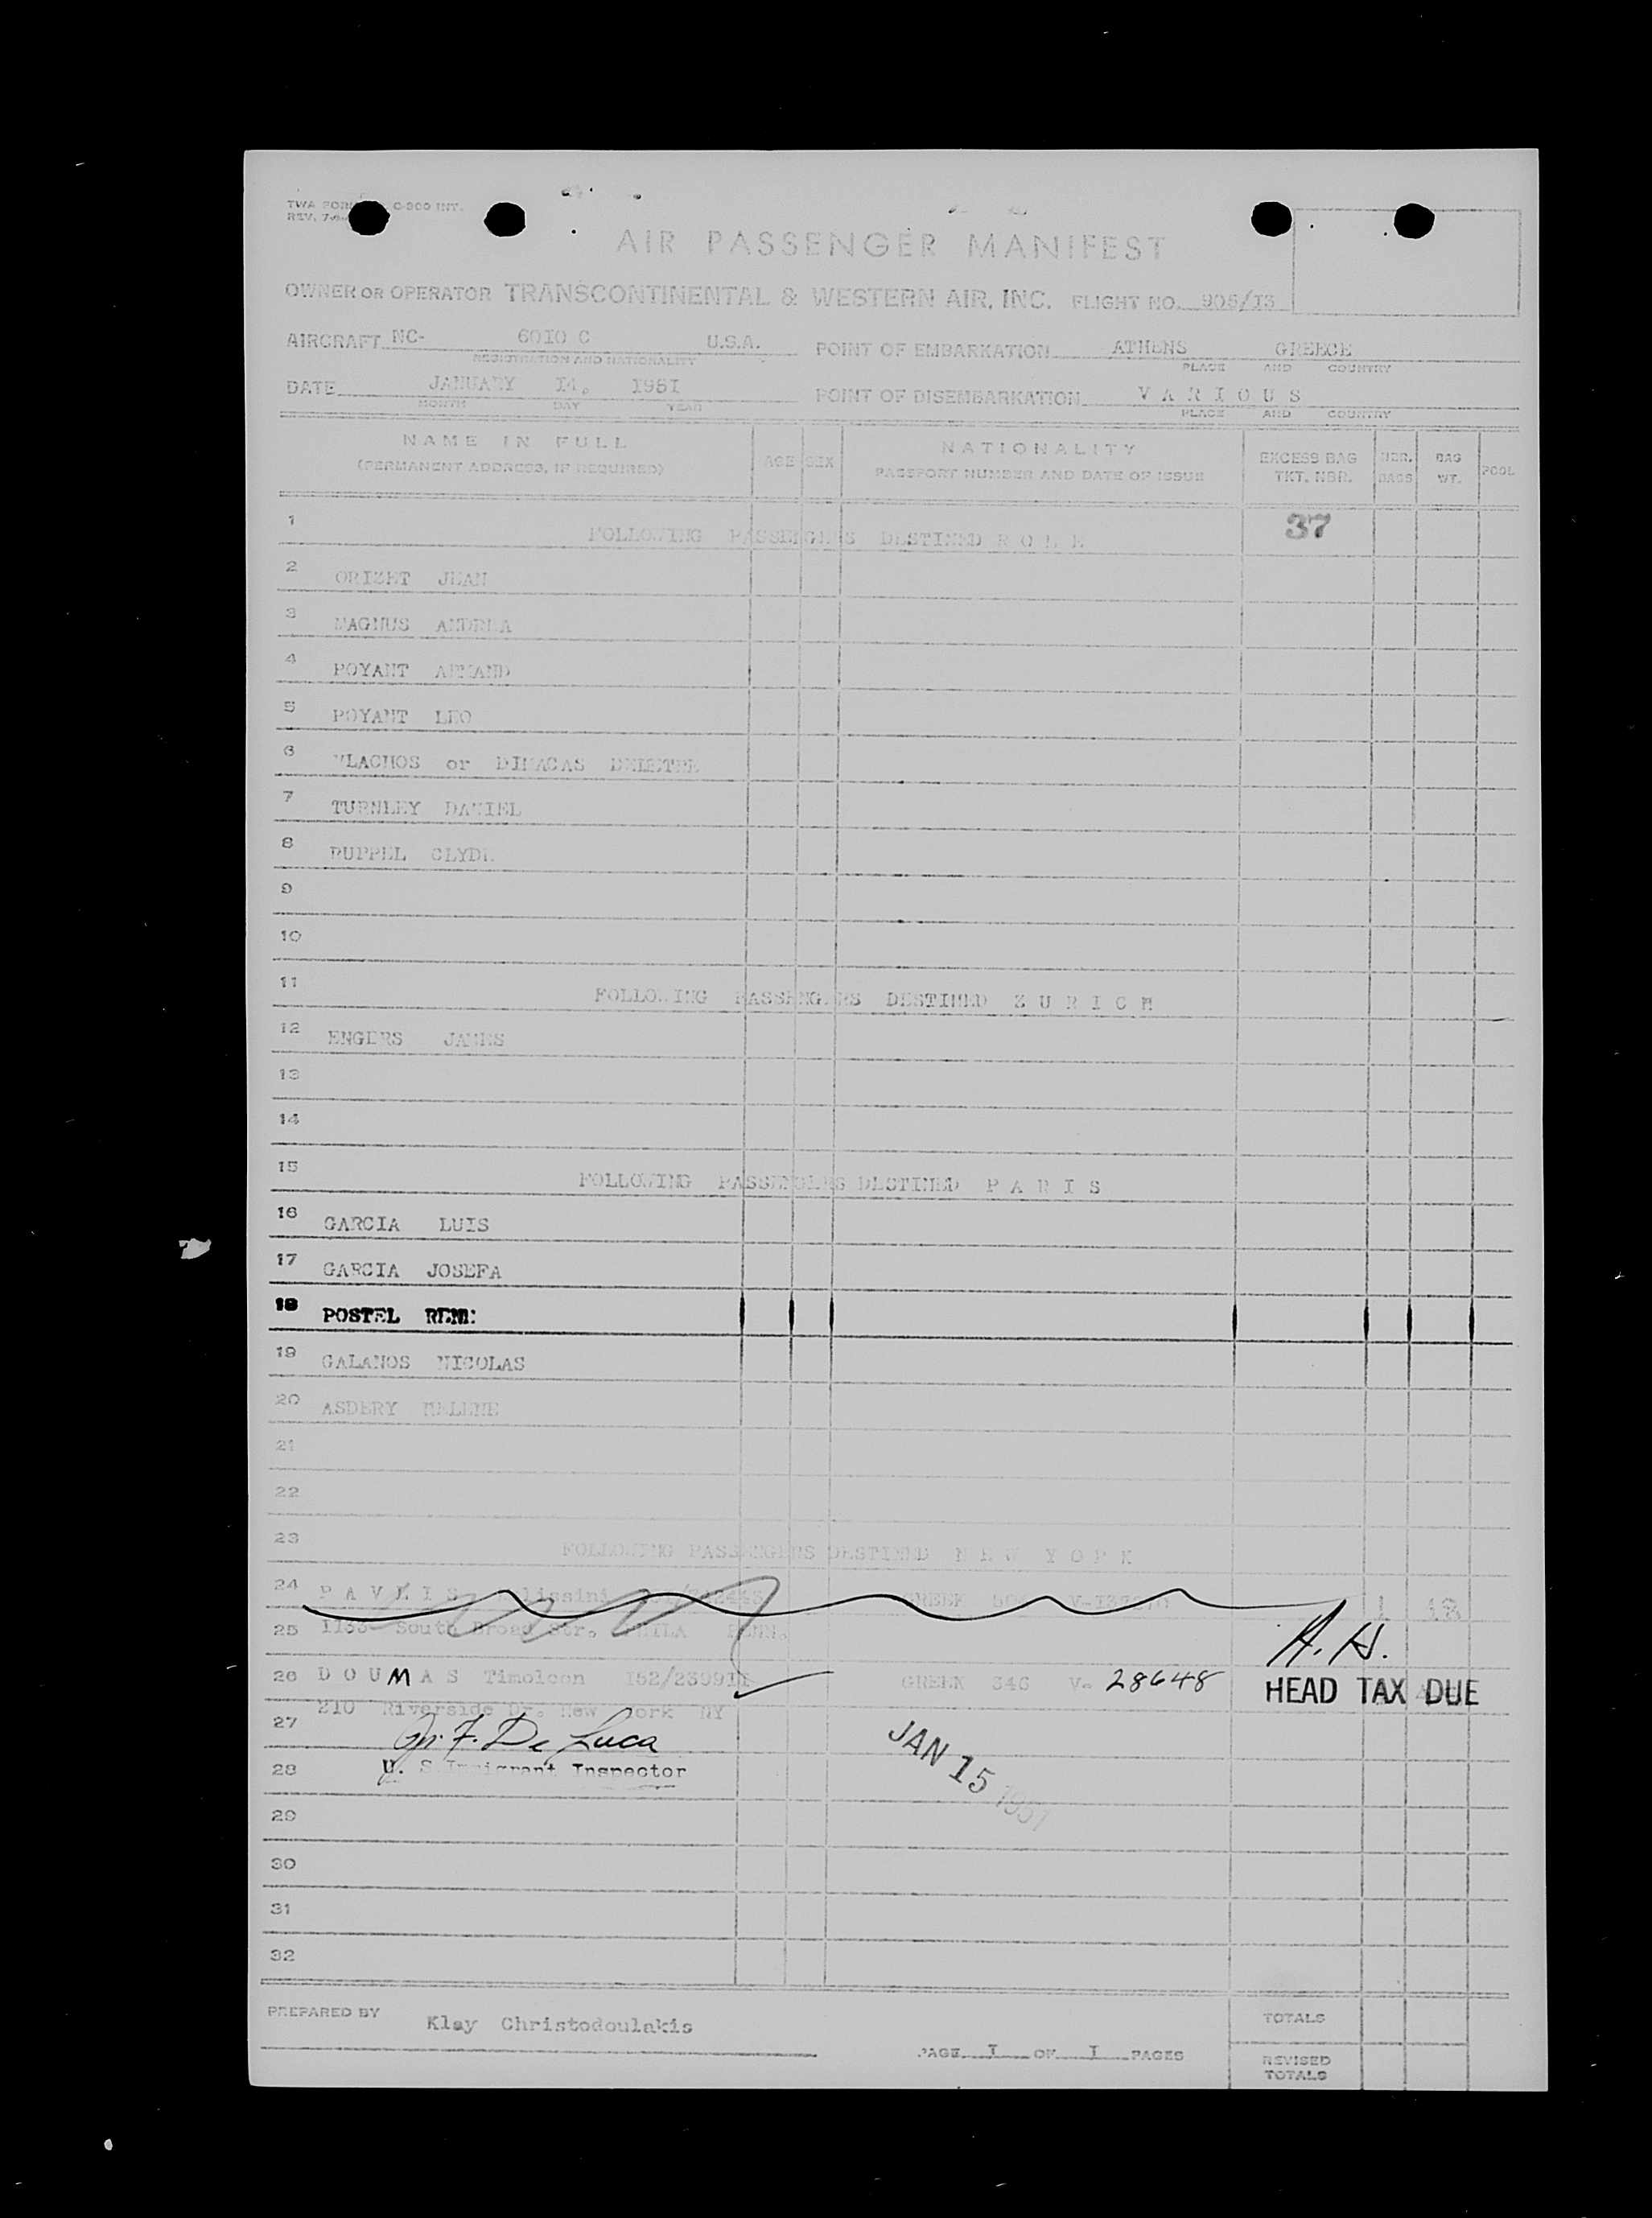 TWA FORM C-900 INT.
REV. 7
AIR PASSENGER MANIFEST
OWNER OR OPERATOR TRANSCONTINENTAL & WESTERN AIR, INC. FLIGHT NO. 905/I3
AIRCRAFT NC- 60I0 C U.S.A. POINT OF EMBARKATION ATHENS GREECE
REGISTRATION AND NATIONALITY PLACE AND COUNTRY
DATE JANUARY I4, I95I POINT OF DISEMBARKATION V A R I O U S
MONTH DAY YEAR PLACE AND COUNTRY
NAME IN FULL
(PERMANENT ADDRESS, IF REQUIRED) AGE SEX NATIONALITY
PASSPORT NUMBER AND DATE OF ISSUE EXCESS BAG
TKT. NBR. NBR.
BAGS BAG
WT. POOL
1 FOLLOWING PASSENGERS DESTINED R O M E 37
2 ORIZET JEAN
3 MAGNUS ANDREA
4 POYANT ARMAND
5 POYANT LEO
6 VLACHOS or DIMACAS DEMETRE
7 TURNLEY DANIEL
8 RUPPEL CLYDE
9
10
11 FOLLOWING PASSENGERS DESTINED Z U R I C H
12 ENGERS JAMES
13
14
15 FOLLOWING PASSENGERS DESTINED P A R I S
16 GARCIA LUIS
17 GARCIA JOSEFA
18 POSTEL
19 GALANOS NICOLAS
20 ASDERY HELENE
21
22
23 FOLLOWING PASSENGERS DESTINED N E W Y O R K
24 P A V L I S GREEK 1
25 1133 South Broad Str. PHILA PENN.
A. H.
26 D O U M A S Timoleon I52/23991I GREEK 346 V- 28648 HEAD TAX DUE
210 Riverside Dr. New York NY
27 De Luca JAN 15 1951
28 U. S. Immigrant Inspector
29
30
31
32
PREPARED BY Klay Christodoulakis TOTALS
PAGE I OF I PAGES REVISED
TOTALS